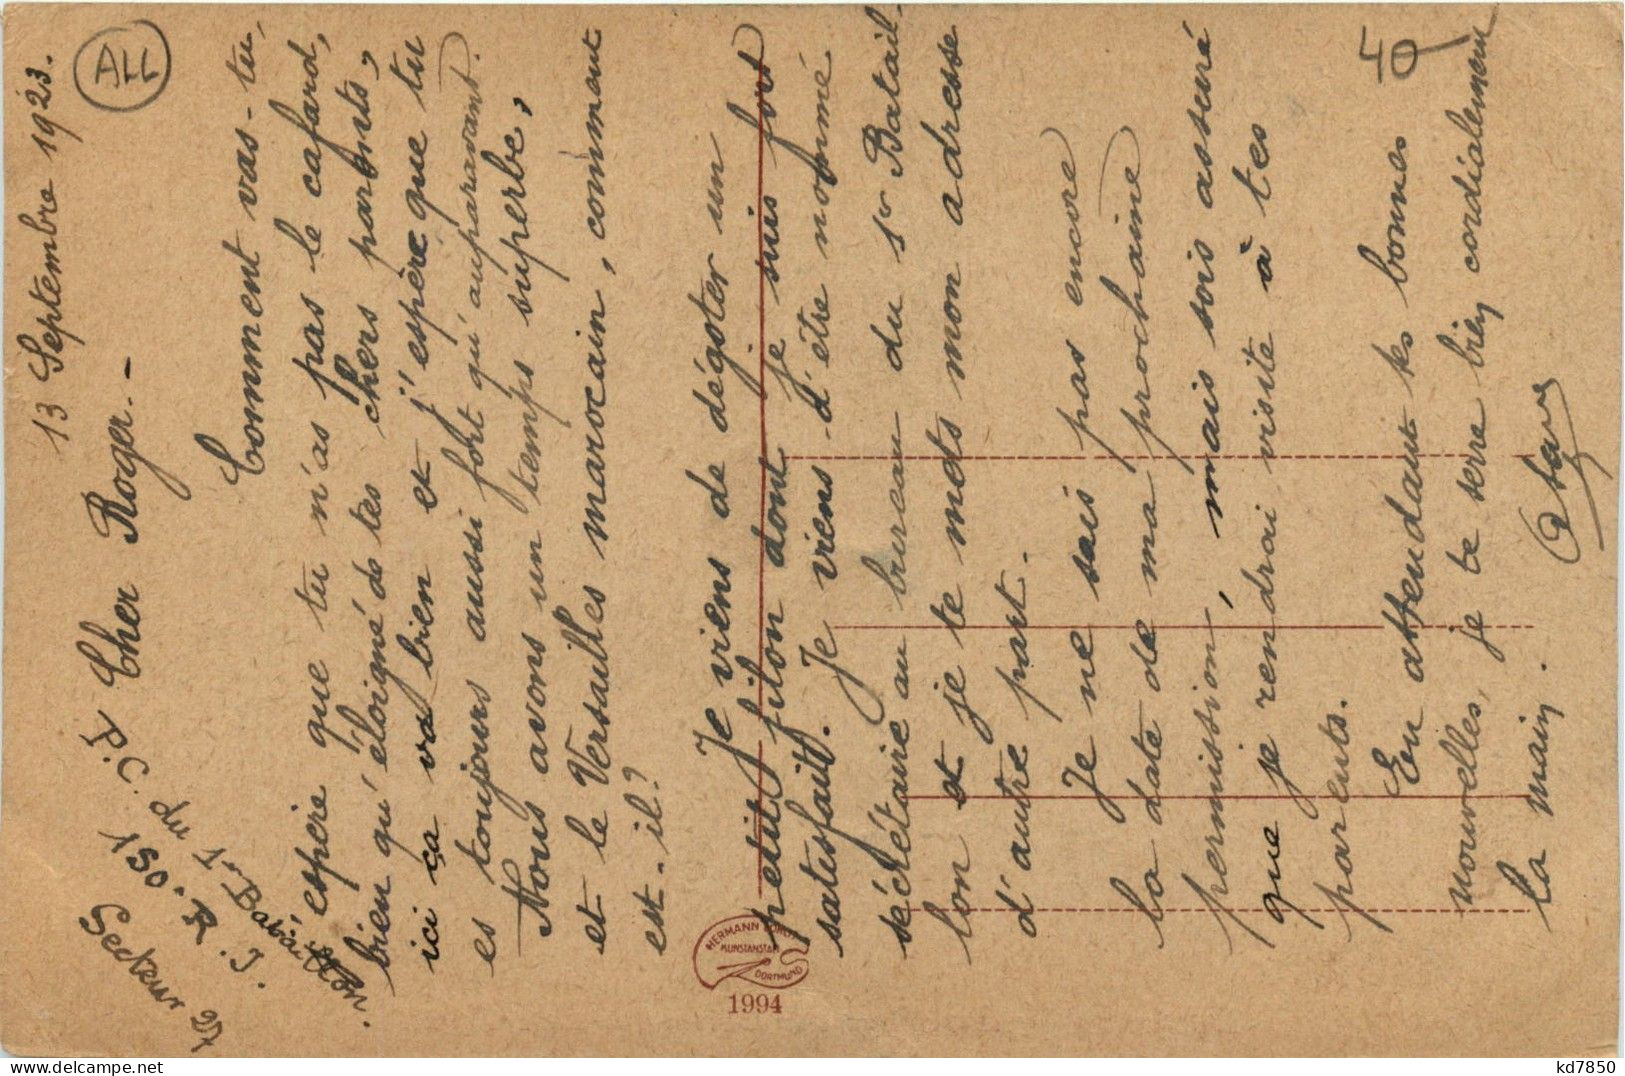 13 Septembre 1923.
ALL
40
Cher Roger. -
Comment vas-tu,
espère que tu n'as pas le cafard,
bien qu'éloigné de tes chers parents,
ici ça va bien et j'espère que tu
es toujours aussi fort qu'auparavant.
Nous avons un temps superbe,
et le Versailles marocain, comment
est-il?
Je viens de dégoter un
petit filon dont je suis fort
satisfait. Je viens d'être nommé
secrétaire au bureau du 1er Batail-
lon et je te mets mon adresse
d'autre part.
Je ne sais pas encore
la date de ma prochaine
permission, mais sois assuré
que je rendrai visite à tes
parents.
En attendant tes bonnes
nouvelles, je te serre bien cordialement
la main.
du 1er Bataillon
150e R.I.
Secteur
HERMANN
KUNSTANSTALT
DORTMUND
1994
kd7850